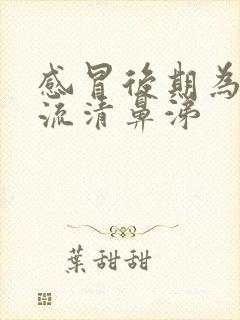 感冒後期為
流清鼻涕
葉甜甜